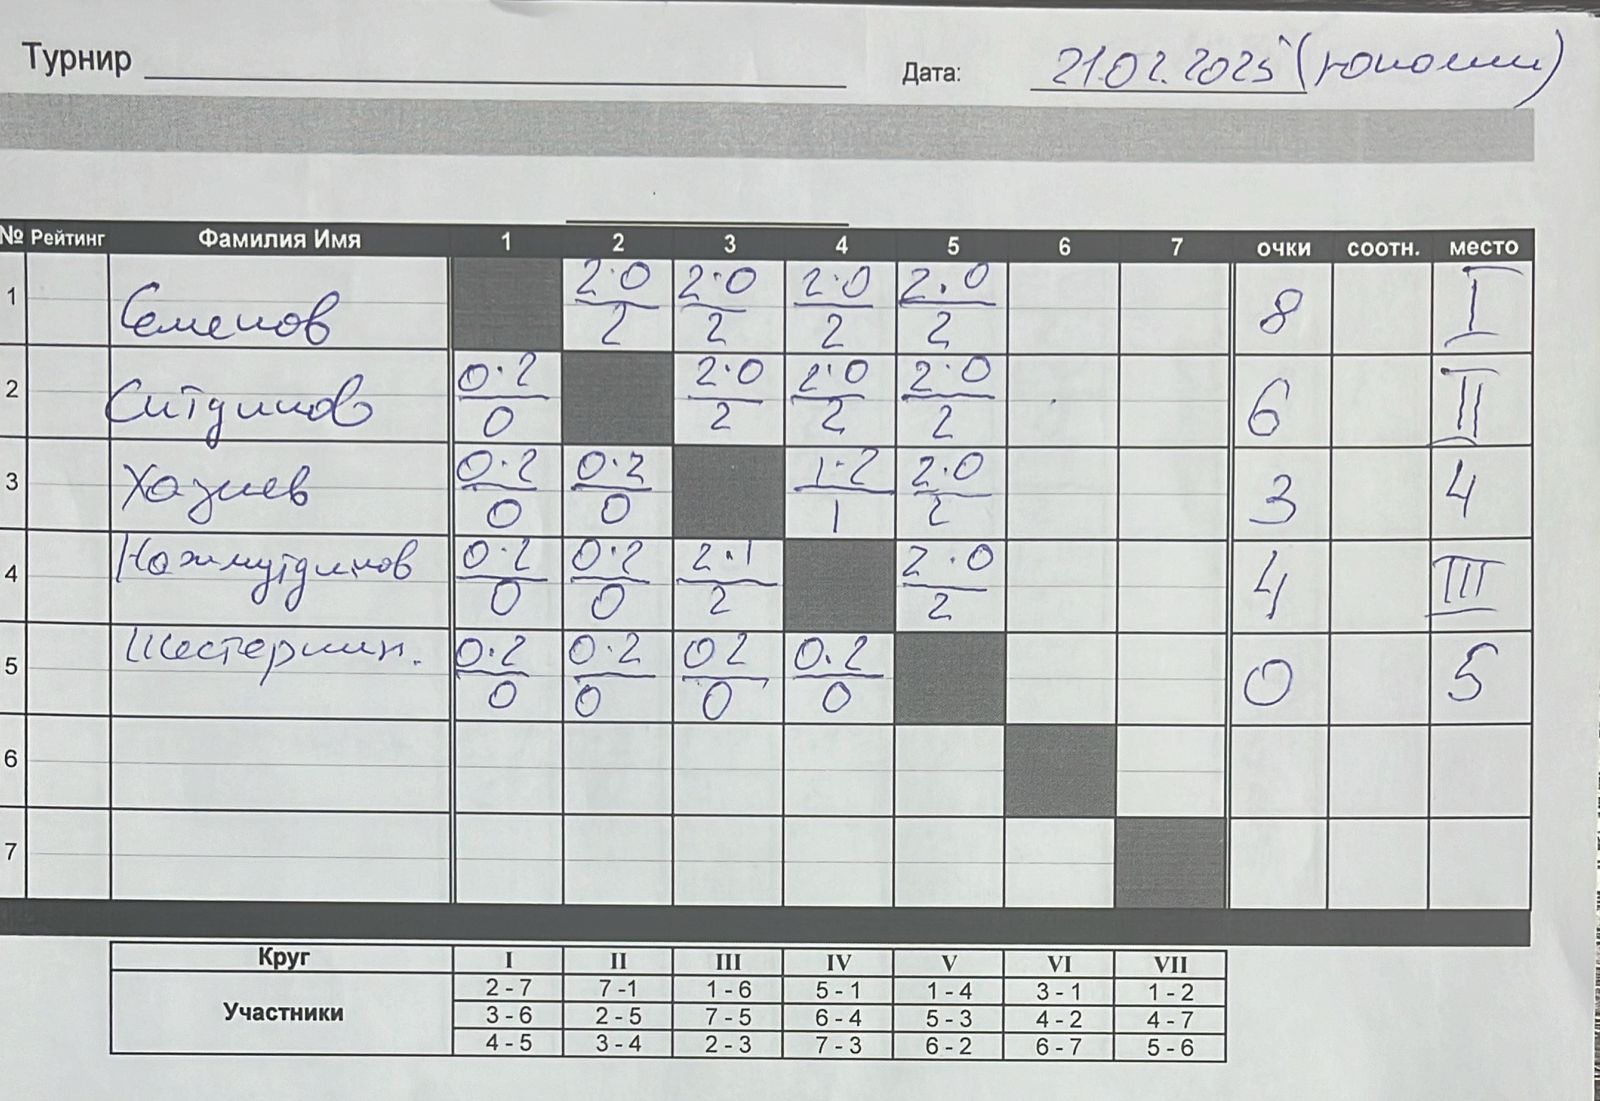 Турнир Дата: 21.02.2025 (юноши)
№ Рейтинг Фамилия Имя 1 2 3 4 5 6 7 очки соотн. место
1 Семенов 2:0 2:0 2:0 2:0
2 2 2 2 8 I
2 Ситдиков 0:2 2:0 2:0 2:0
0 2 2 2 6 II
3 Хазиев 0:2 0:2 1:2 2:0
0 0 1 2 3 4
4 Нажмутдинов 0:2 0:2 2:1 2:0
0 0 2 2 4 III
5 Шестернин. 0:2 0:2 0 2 0:2
0 0 0 0 0 5
6
7
Круг I II III IV V VI VII
Участники 2 - 7 7 -1 1 - 6 5 - 1 1 - 4 3 - 1 1 - 2
3 - 6 2 - 5 7 - 5 6 - 4 5 - 3 4 - 2 4 - 7
4 - 5 3 - 4 2 - 3 7 - 3 6 - 2 6 - 7 5 - 6